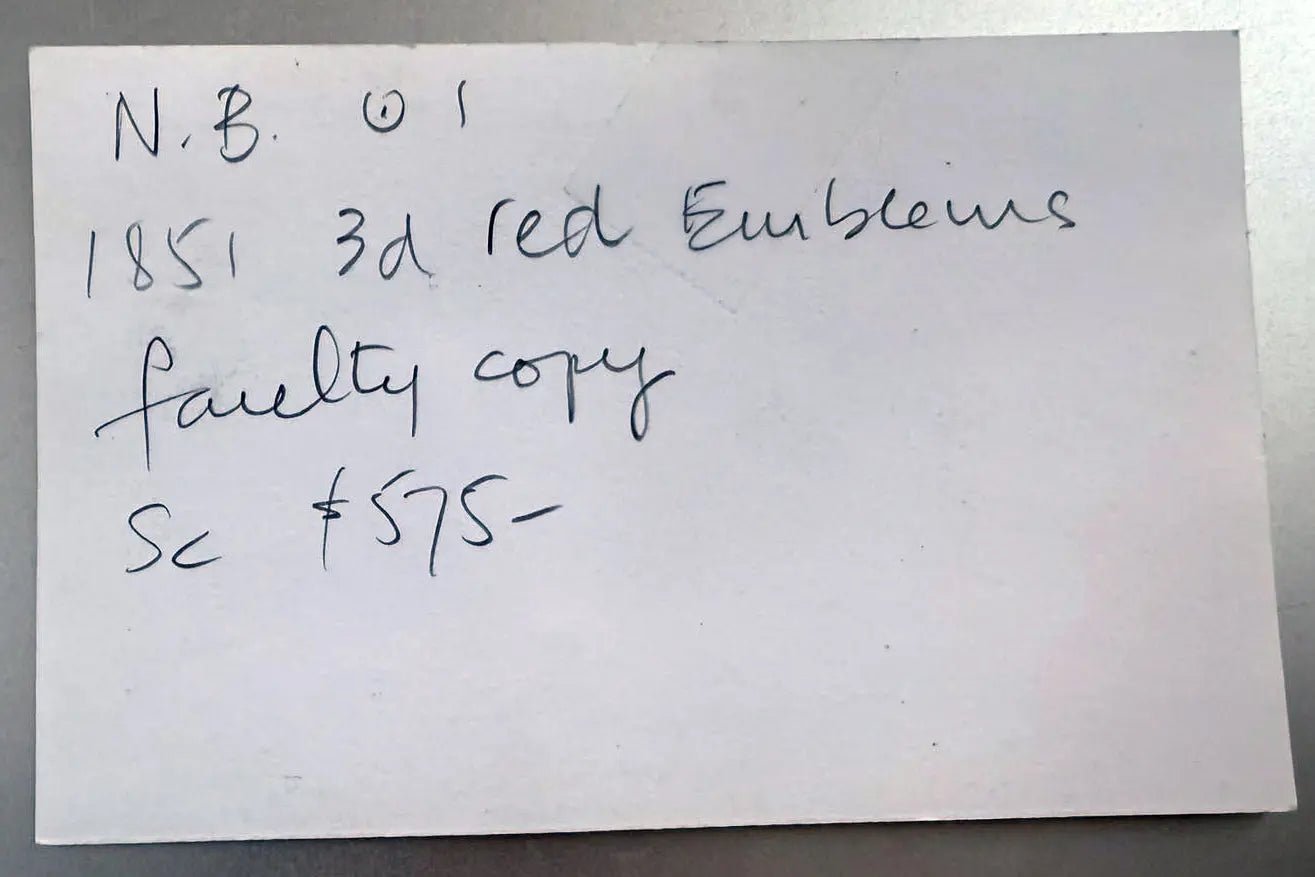 N.B. ⊙ 1
1851 3d red Emblems
faulty copy
Sc $575-